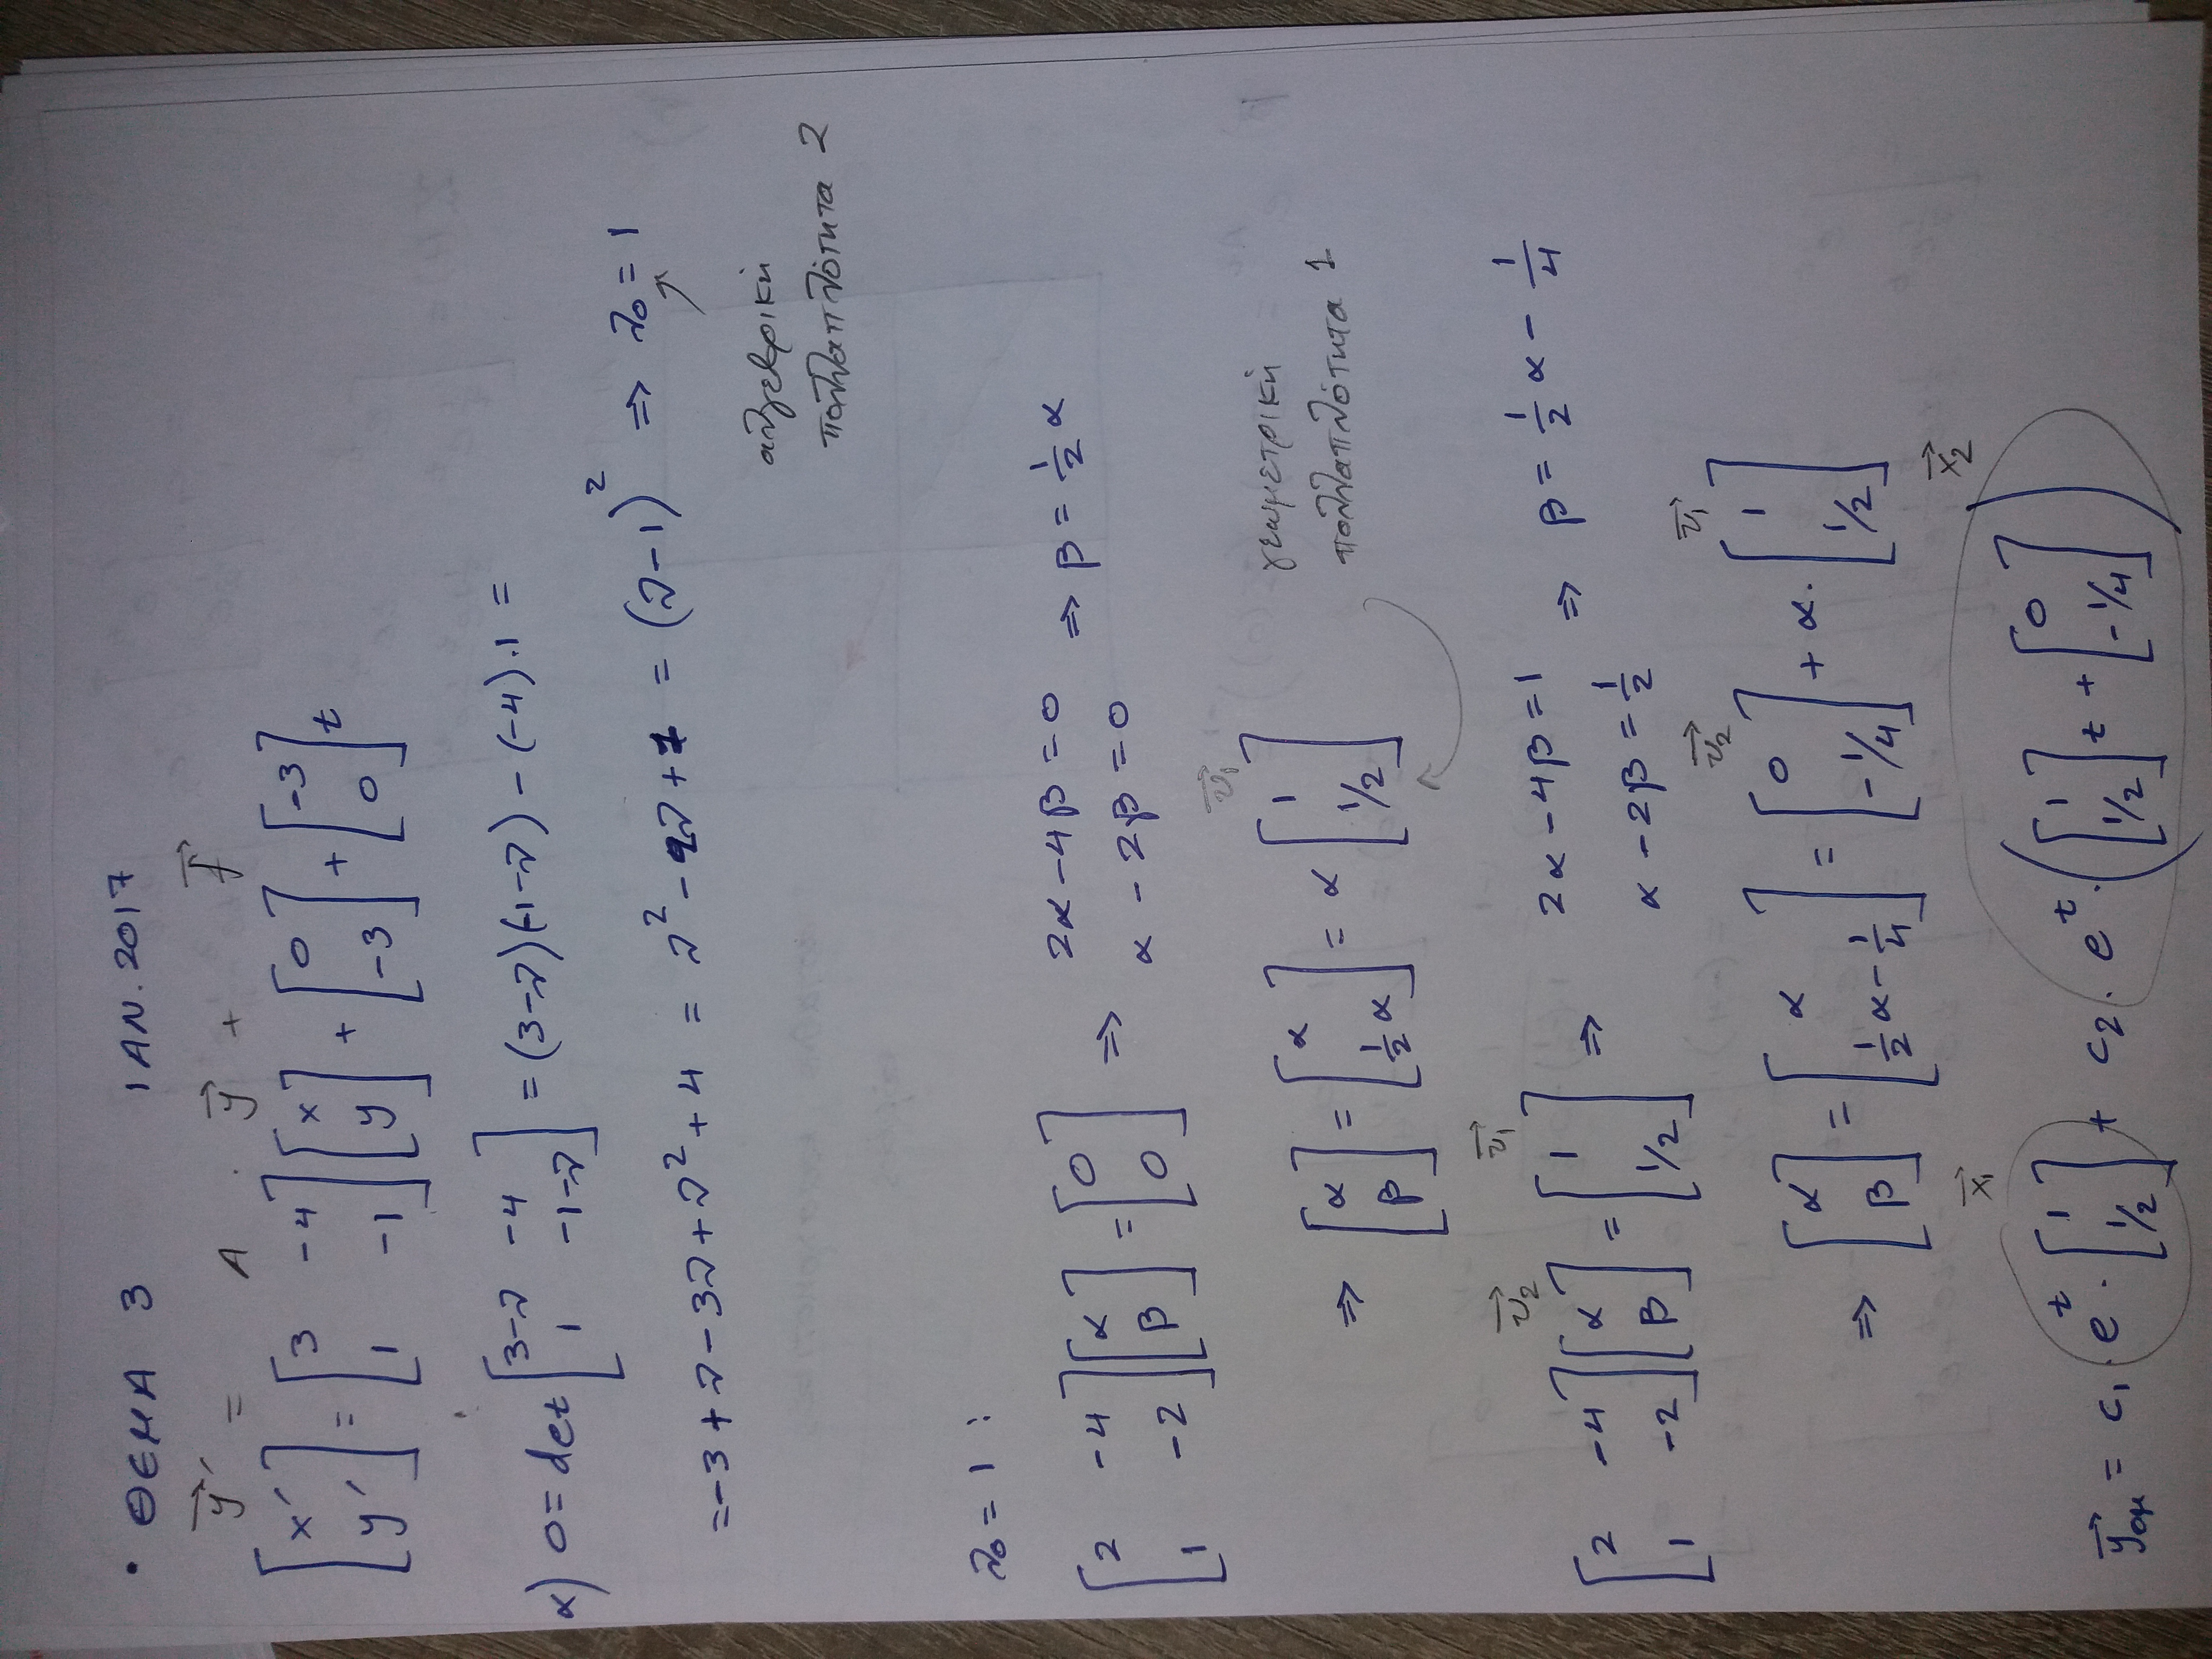 • ΘΕΜΑ 3 ΙΑΝ. 2017
y⃗' = A · y⃗ + f⃗
[x' ; y'] = [3 -4 ; 1 -1] [x ; y] + [0 ; -3] + [-3 ; 0] t
α) 0 = det [3-λ -4 ; 1 -1-λ] = (3-λ)(-1-λ) - (-4)·1 =
= -3 + λ - 3λ + λ² + 4 = λ² - 2λ + 1 = (λ-1)² ⇒ λ₀ = 1
αλγεβρική
πολλαπλότητα 2
λ₀ = 1 :
[2 -4 ; 1 -2] [α ; β] = [0 ; 0] ⇒ 2α - 4β = 0 ⇒ β = ½ α
α - 2β = 0
v⃗₁
⇒ [α ; β] = [α ; ½ α] = α [1 ; 1/2]
γεωμετρική
πολλαπλότητα 1
v⃗₂ v⃗₁
[2 -4 ; 1 -2] [α ; β] = [1 ; 1/2] ⇒ 2α - 4β = 1 ⇒ β = ½ α - ¼
α - 2β = ½
v⃗₂ v⃗₁
⇒ [α ; β] = [α ; ½ α - ¼] = [0 ; -1/4] + α · [1 ; 1/2]
x⃗₁ x⃗₂
y⃗ομ = c₁ · eᵗ · [1 ; 1/2] + c₂ · eᵗ · ([1 ; 1/2] t + [0 ; -1/4])